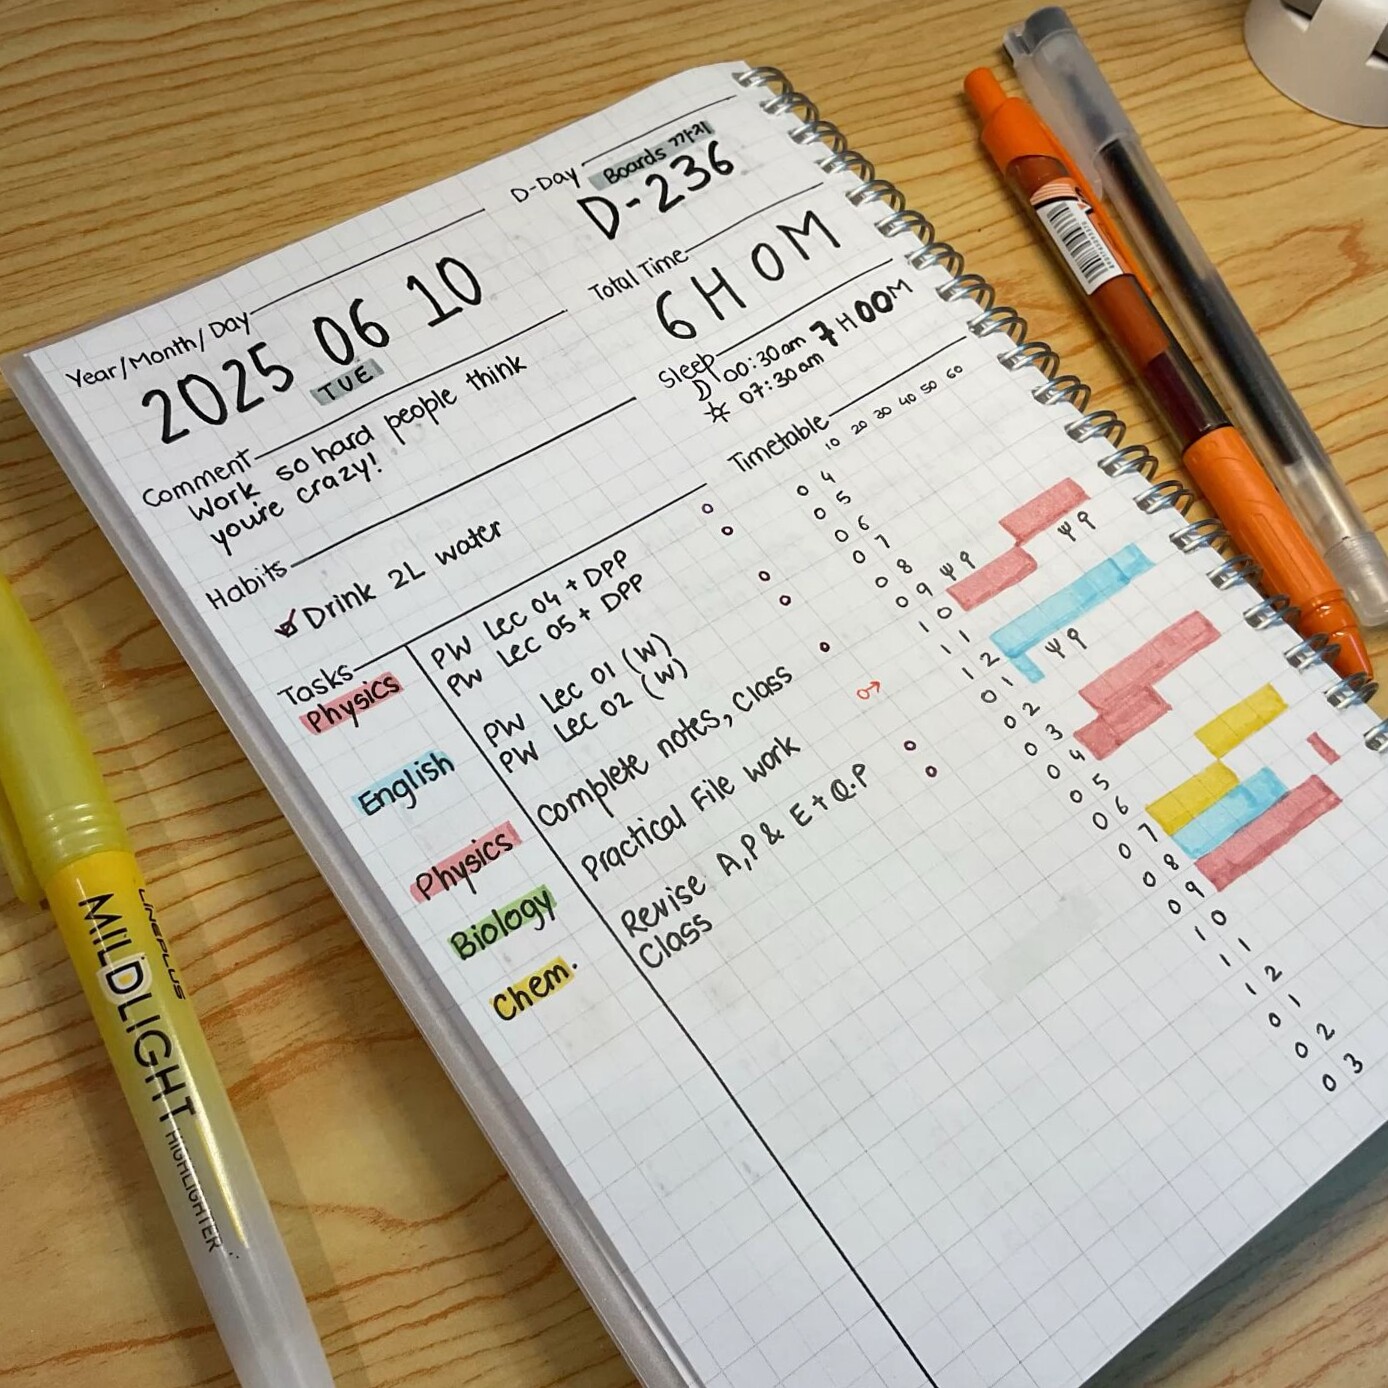 D-Day
Boards 까지
D-236
Year/Month/Day
2025 06 10
TUE
Total Time
6H 0M
Comment
Work so hard people think
you're crazy!
Sleep
00:30am 7H00M
07:30am
Habits
Drink 2L water
Timetable
10 20 30 40 50 60
Tasks
Physics
PW Lec 04 + DPP
PW Lec 05 + DPP
English
PW Lec 01 (W)
PW Lec 02 (W)
Physics
Complete notes, Class
Biology
Practical File work
Chem.
Revise A,P & E + Q.P
Class
04
05
06
07
08
09
10
11
12
01
02
03
04
05
06
07
08
09
10
11
12
01
02
03
LINEPLUS
MILDLIGHT HIGHLIGHTER